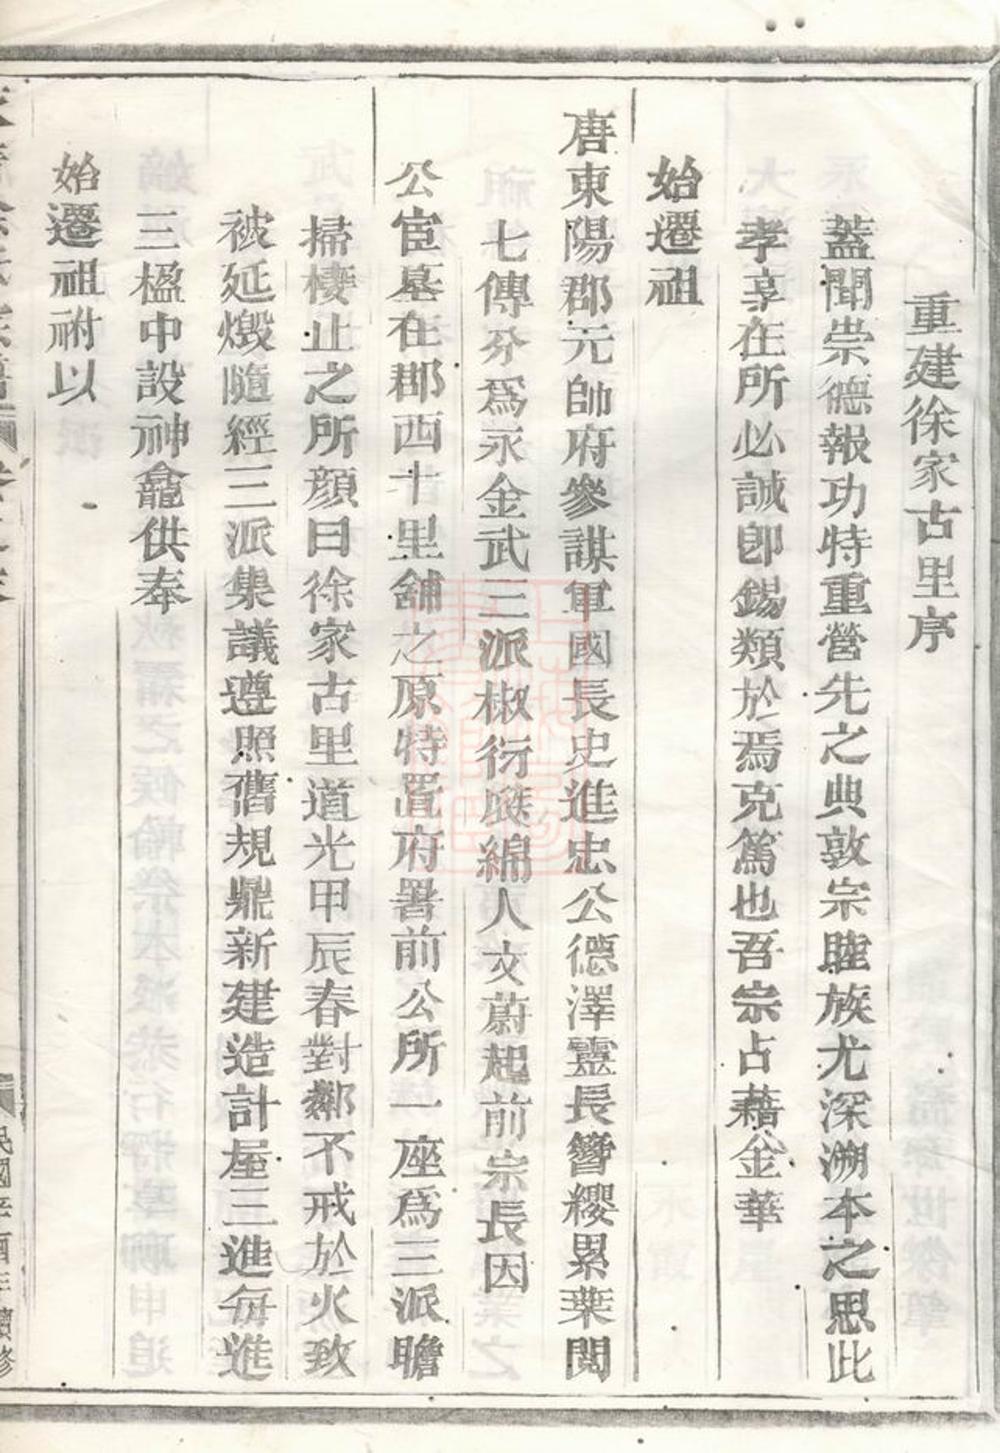 重建徐家古里序
蓋聞崇德報功特重營先之典敦宗睦族尤深溯本之思此
孝享在所必誠卽錫類於焉克篤也吾宗占藉金華
始遷祖
唐東陽郡元帥府參謀軍國長史進忠公德澤靈長簪纓累葉閱
七傳分爲永金武三派椒衍瓞綿人文蔚起前宗長因
公宦墓在郡西十里舖之原特置府署前公所一座爲三派瞻
掃棲止之所顏曰徐家古里道光甲辰春對鄰不戒於火致
被延燬隨經三派集議遵照舊規鼎新建造計屋三進每進
三楹中設神龕供奉
始遷祖祔以
民國辛酉年續修